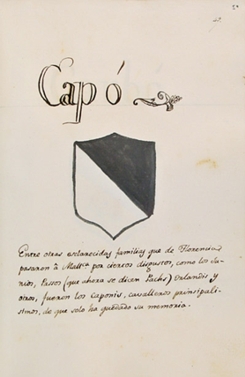 Capó
Entre otras esclarecidas familias que de Florencia
pasaron à Mallca. por ciertos disgustos, como los
Pessos (que ahora se dicen Pachs) Orlandis y
otros, fueron los Caponis, cavalleros principalis-
simos, de que solo ha quedado su memoria.